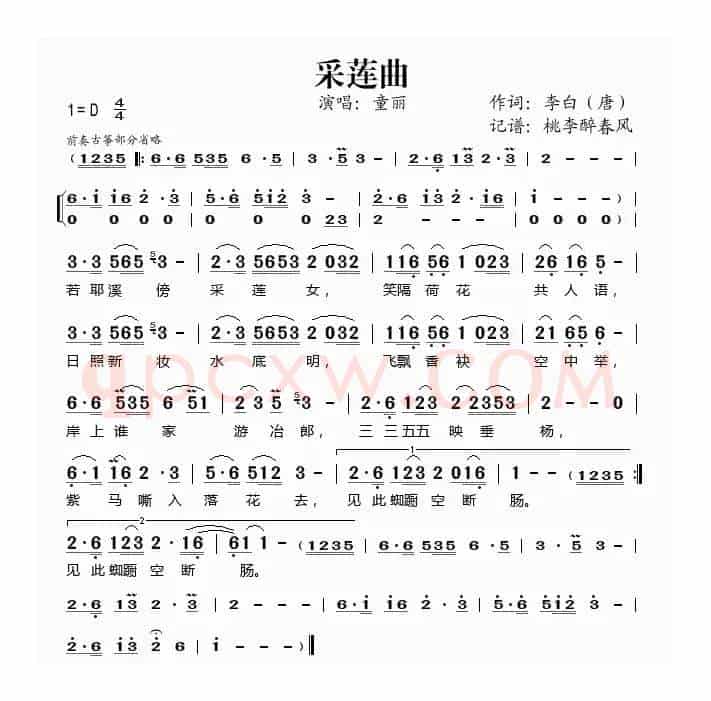 采莲曲
1=D 4/4 演唱：童丽 作词：李白（唐）
记谱：桃李醉春风
前奏古筝部分省略
(1235 |: 6·6 535 6·5 | 3·5 3 - | 2·6 13 2·3 | 5 - - - |
6·1 16 2·3 | 5·6 512 3 - | 2·6 13 2·16 | 1 - - - )
0 0 0 0 | 0 0 0 23 | 2 - - - | 0 0 0 0 )
3·3 565 53 - | 2·3 5653 2 032 | 116 56 1 023 | 26 16 5 - |
若耶溪 傍 采莲 女， 笑隔荷花 共人语，
3·3 565 53 - | 2·3 5653 2 032 | 116 56 1 023 | 21 65 6 - |
日照新 妆 水底 明， 飞飘香袂 空中举，
6·6 535 6 51 | 2 3 5 3 - | 2·6 123 2 2353 | 2 - - 0 |
岸上谁 家 游冶郎， 三三五五映垂 杨，
1
6·1 16 2·3 | 5·6 512 3 - | 2·6 123 2 016 | 1 - - (1235 :|
紫马嘶入落花去， 见此蜘蹰空断 肠。
2
2·6 123 2·16 | 61 1 - (1235 | 6·6 535 6·5 | 3·5 3 - |
见此蜘蹰空断 肠。
2·6 13 2·3 | 2 - - - | 6·1 61 2·3 | 5·6 512 3 - |
2·6 13 2 6 | 1 - - - )|
qpcxw.COM